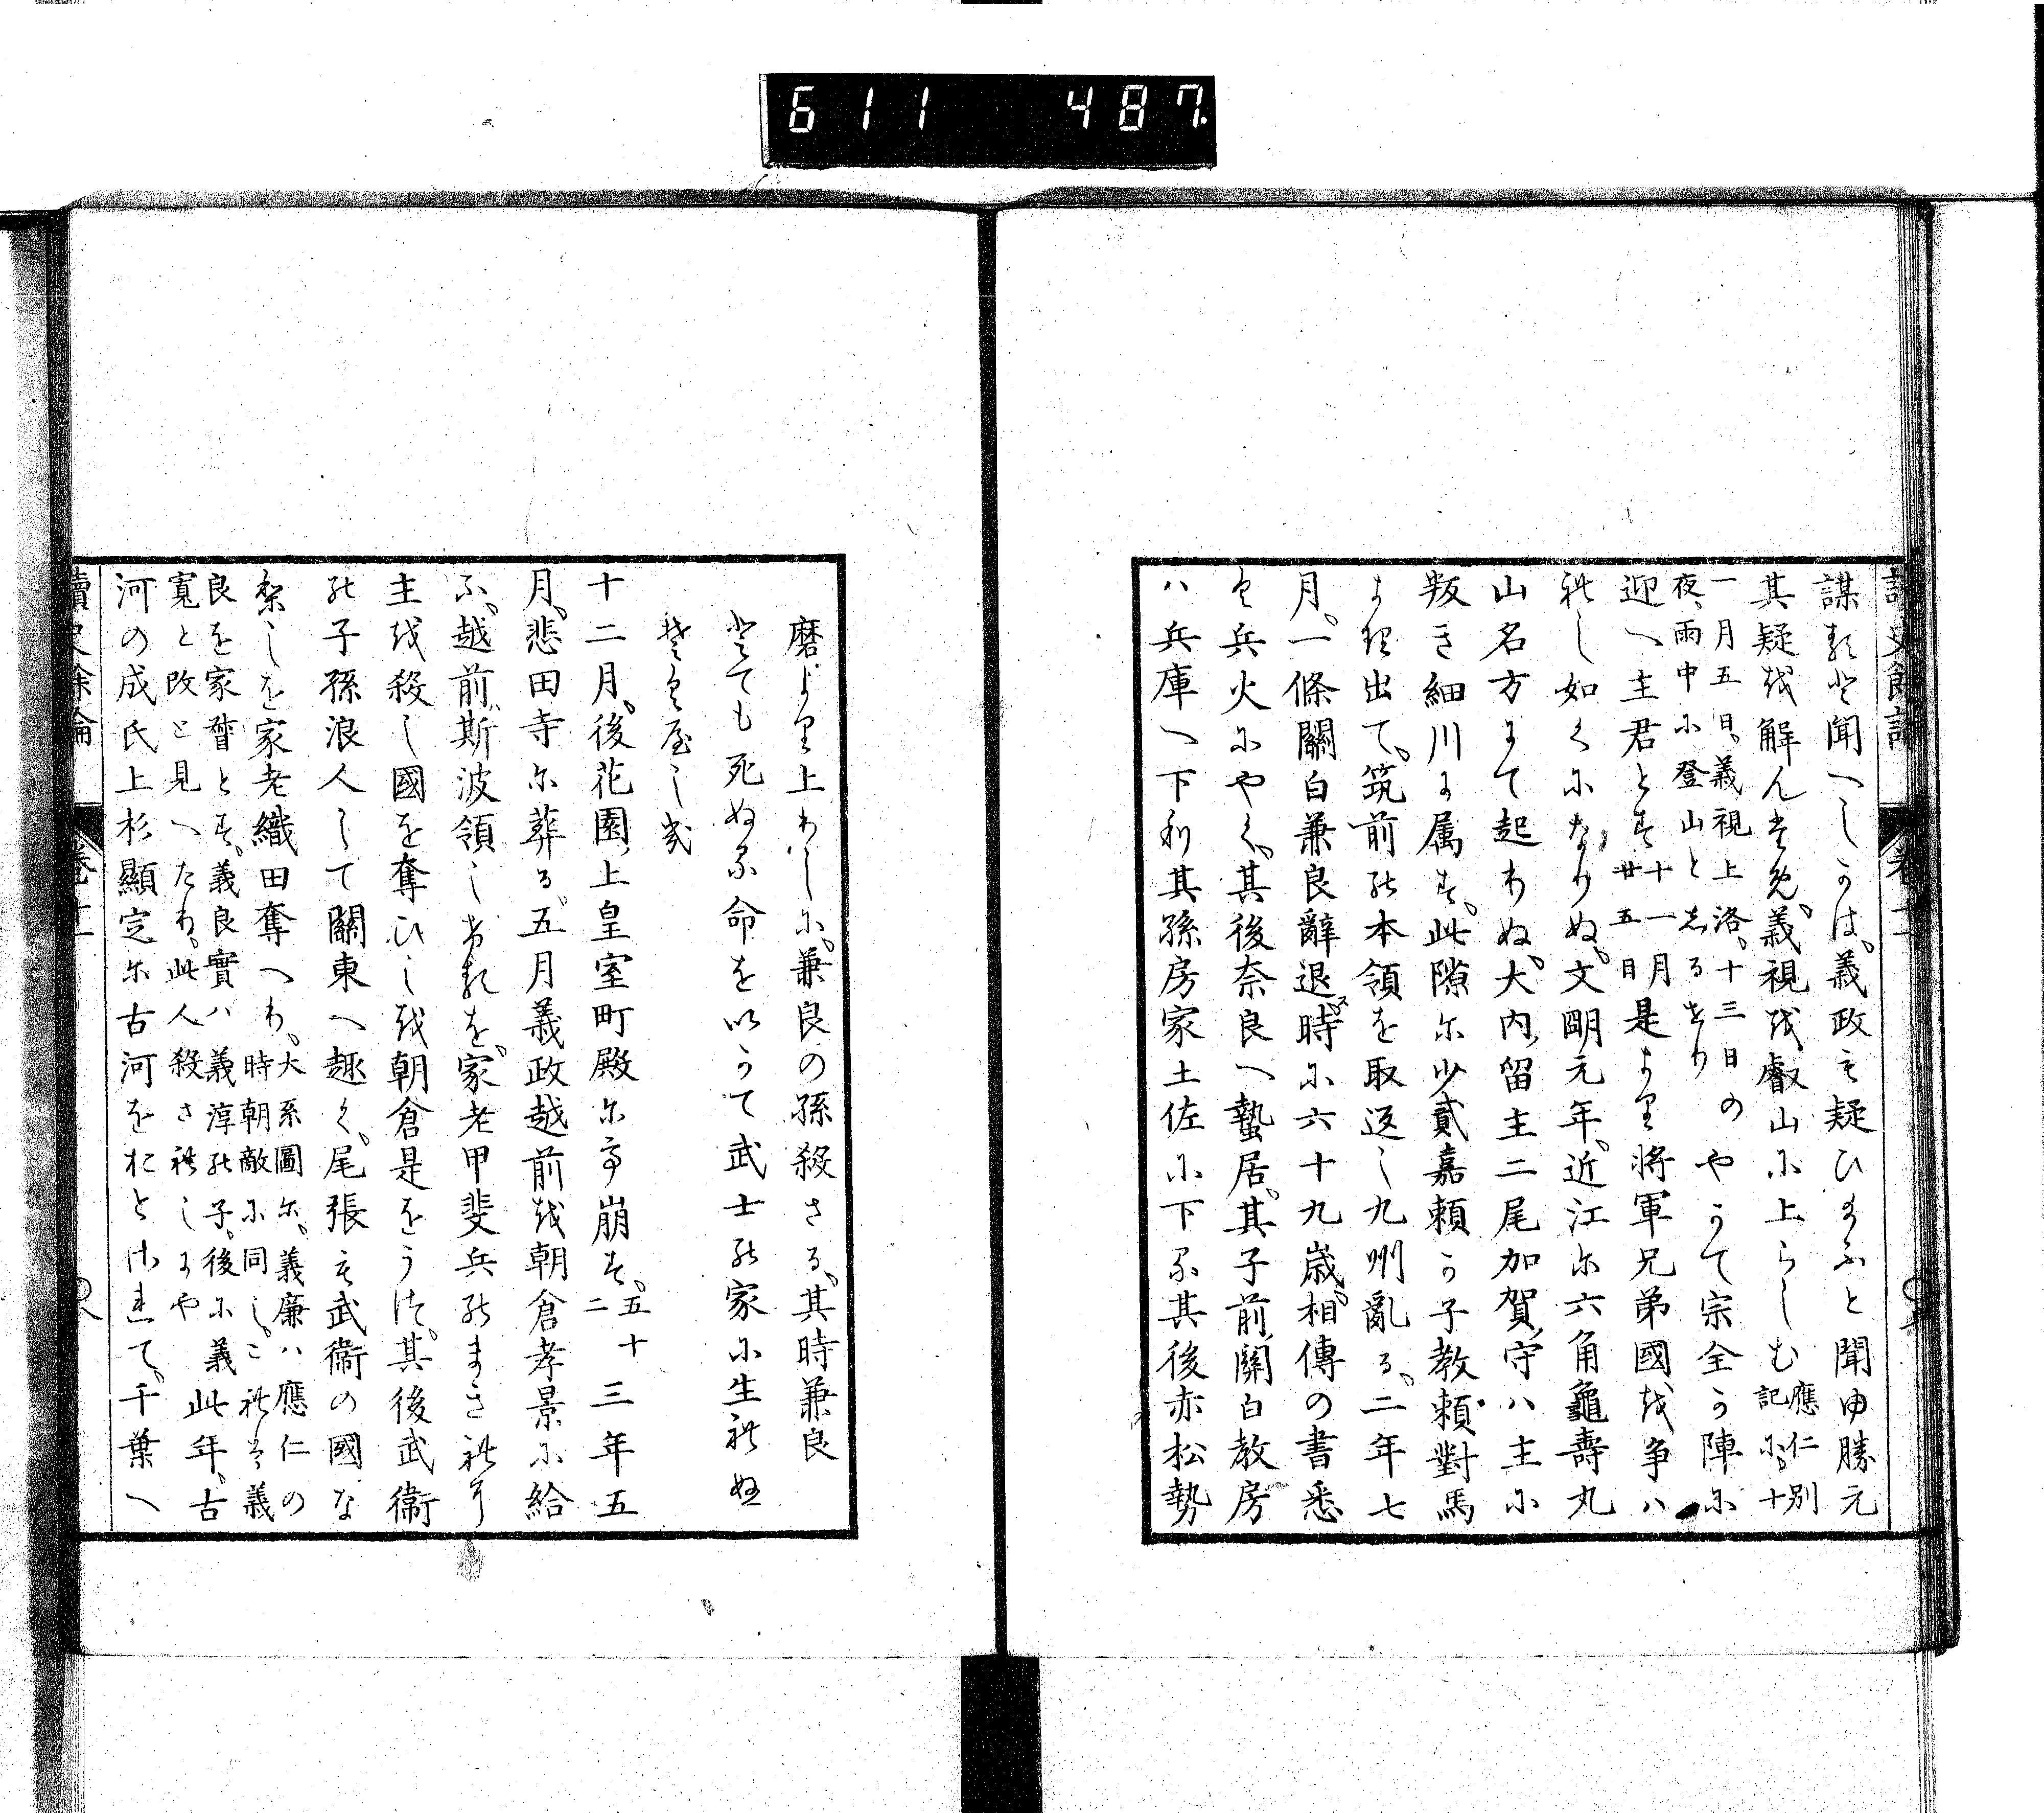 611 487
讀史餘論 卷十一
謀ると聞へしかは、義政も疑ひ給ふと聞ゆ勝元
其疑を解ん為め、義視を叡山に上らしむ 應仁別
記に、十
一月五日、義視上洛、十三日の
夜、雨中に登山としるせり
やかて宗全か陣に
迎へ主君とす 十一月
廿五日 是より將軍兄弟國を爭ハ
れし如くになりぬ、文明元年、近江に六角龜壽丸
山名方まて起りぬ、大内、留主二尾加賀守ハ主に
叛き細川に属す、此隙に少貳嘉頼か子教頼對馬
より出て、筑前の本領を取返し九州亂る、二年七
月、一條關白兼良辭退ス、時に六十九歳、相傳の書悉
く兵火にやく、其後奈良へ蟄居、其子前關白教房
ハ兵庫へ下り其孫房家土佐に下る其後赤松勢
磨より上りしに、兼良の孫殺さる、其時兼良
とても死ぬる命をいかて武士の家に生れぬ
そくやしき
十二月、後花園上皇室町殿に於崩す、五十
二 三年五
月、悲田寺に葬る、五月義政越前を朝倉孝景に給
ふ、越前、斯波領しけるを、家老甲斐兵のまきれに
主を殺し國を奪ひしを朝倉是をうつ、其後武衞
の子孫浪人して關東へ趣く、尾張も武衞の國な
りしを家老織田奪へり、大系圖に、義廉ハ應仁の
時朝敵に同し、これは義
良を家督とす、義良實ハ義淳の子、後に義
寛と改と見へたり、此人殺されしにや
此年、古
河の成氏上杉顯定に古河をおとされて、千葉へ
讀史餘論 卷十一 八